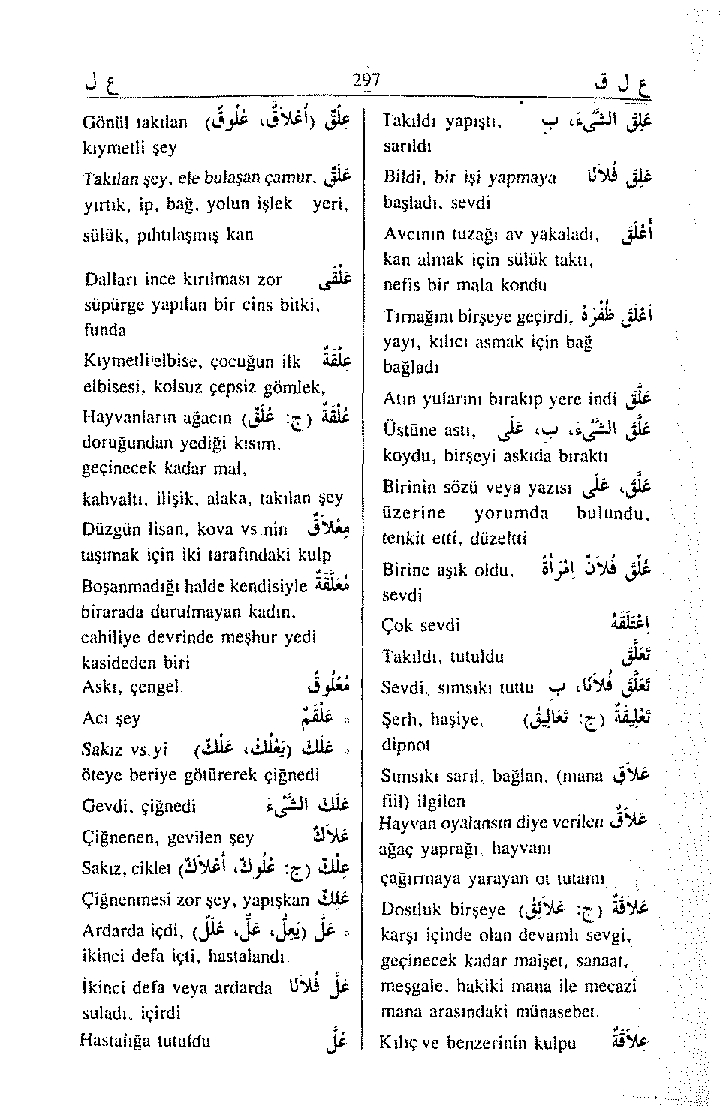 ع ل ق
297
ع ل
عَلِقَ الشَّيْءَ، ب Takıldı yapıştı,
sarıldı
عَلِقَ فُلاَنًا Bildi, bir işi yapmaya
başladı, sevdi
أَعْلَقَ Avcının tuzağı av yakaladı,
kan almak için sülük taktı,
nefis bir mala kondu
أَعْلَقَ ظُفْرَهُ Tırnağını birşeye geçirdi,
yayı, kılıcı asmak için bağ
bağladı
عَلَّقَ Atın yularını bırakıp yere indi
عَلَّقَ الشَّيْءَ، ب، عَلَى Üstüne astı,
koydu, birşeyi askıda bıraktı
عَلَّقَ، عَلَى Birinin sözü veya yazısı
üzerine yorumda bulundu,
tenkit etti, düzeltti
عُلِّقَ فُلاَنٌ اِمْرَأَةً Birine aşık oldu,
sevdi
اِعْتَلَقَهُ Çok sevdi
تَعَلَّقَ Takıldı, tutuldu
تَعَلَّقَ فُلاَنًا، ب Sevdi, sımsıkı tuttu
تَعْلِيقَةٌ (ج: تَعَالِيقُ) Şerh, haşiye,
dipnot
عَلاَقِ Sımsıkı sarıl, bağlan, (mana
fiil) ilgilen
عَلاَقٌ Hayvan oyalansın diye verilen
ağaç yaprağı, hayvanı
çağırmaya yarayan ot tutamı
عَلاَقَةٌ (ج: عَلاَئِقُ) Dostluk birşeye
karşı içinde olan devamlı sevgi,
geçinecek kadar maişet, sanaat,
meşgale, hakiki mana ile mecazi
mana arasındaki münasebet,
عِلاَقَةٌ Kılıç ve benzerinin kulpu
عِلْقٌ (أَعْلاَقٌ، عُلُوقٌ) Gönül takılan
kıymetli şey
عَلَقٌ Takılan şey, ele bulaşan çamur,
yırtık, ip, bağ, yolun işlek yeri,
sülük, pıhtılaşmış kan
عَلْقَى Dalları ince kırılması zor
süpürge yapılan bir cins bitki,
funda
عِلْقَةٌ Kıymetli elbise, çocuğun ilk
elbisesi, kolsuz çepsiz gömlek,
عُلْقَةٌ (ج: عُلَقٌ) Hayvanların ağacın
doruğundan yediği kısım,
geçinecek kadar mal,
kahvaltı, ilişik, alaka, takılan şey
مِعْلاَقٌ Düzgün lisan, kova vs.nin
taşımak için iki tarafındaki kulp
مُعَلَّقَةٌ Boşanmadığı halde kendisiyle
birarada durulmayan kadın,
cahiliye devrinde meşhur yedi
kasideden biri
مُعْلُوقٌ Askı, çengel
عَلْقَمٌ Acı şey
عَلَكَ (يَعْلُكُ، عَلْكٌ) Sakız vs.yi
öteye beriye götürerek çiğnedi
عَلَكَ الشَّيْءَ Gevdi, çiğnedi
عَلاَكٌ Çiğnenen, gevilen şey
عِلْكٌ (ج: عُلُوكٌ، أَعْلاَكٌ) Sakız, ciklet
عَلِكٌ Çiğnenmesi zor şey, yapışkan
عَلَّ (يَعُلُّ، عَلٌّ، عَلَلٌ) Ardarda içdi,
ikinci defa içti, hastalandı,
عَلَّ فُلاَنًا İkinci defa veya ardarda
suladı, içirdi
عُلَّ Hastalığa tutuldu